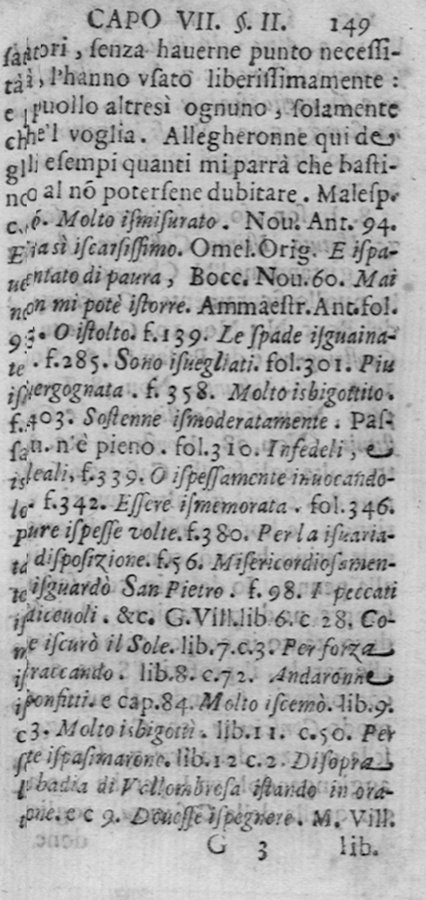 CAPO VII. §. II. 149
santori, senza hauerne punto necessi-
tà, l'hanno vsato liberissimamente:
e puollo altresì ognuno, solamente
che'l voglia. Allegheronne qui de
gli esempi quanti mi parrà che basti-
no al nō potersene dubitare. Malesp.
c. 6. Molto ismisurato. Nou. Ant. 94.
E sì iscarsissimo. Omel. Orig. E ispa-
uentato di paura, Bocc. Nou. 60. Mai
non mi potè istorre. Ammaestr. Ant. fol.
O istolto. f. 139. Le spade isguaina-
te. f. 285. Sono isuegliati. fol. 301. Piu
isuergognata. f. 358. Molto isbigottito.
f. 403. Sostenne ismoderatamente. Pas-
san. n'è pieno. fol. 310. Infedeli, e
isleali, f. 339. O ispessamente inuocando-
lo. f. 342. Essere ismemorata. fol. 346.
pure ispesse volte. f. 380. Per la isuaria-
ta disposizione. f. 56. Misericordiosamen-
te isguardò San Pietro. f. 98. I peccati
isdiceuoli. &c. G. Vill. lib. 6. c 28. Co-
me iscurò il Sole. lib. 7. c. 3. Per forza
istraccando. lib. 8. c. 72. Andaronne
isconfitti. e cap. 84. Molto iscemò. lib. 9.
c 3. Molto isbigottì. lib. 11. c. 50. Per
ste ispasimarone. lib. 12 c. 2. Disopra
l'badia di Vallombrosa istando in ora-
ione. e c 9. Douesse ispegnere. M. Vill.
G 3 lib.